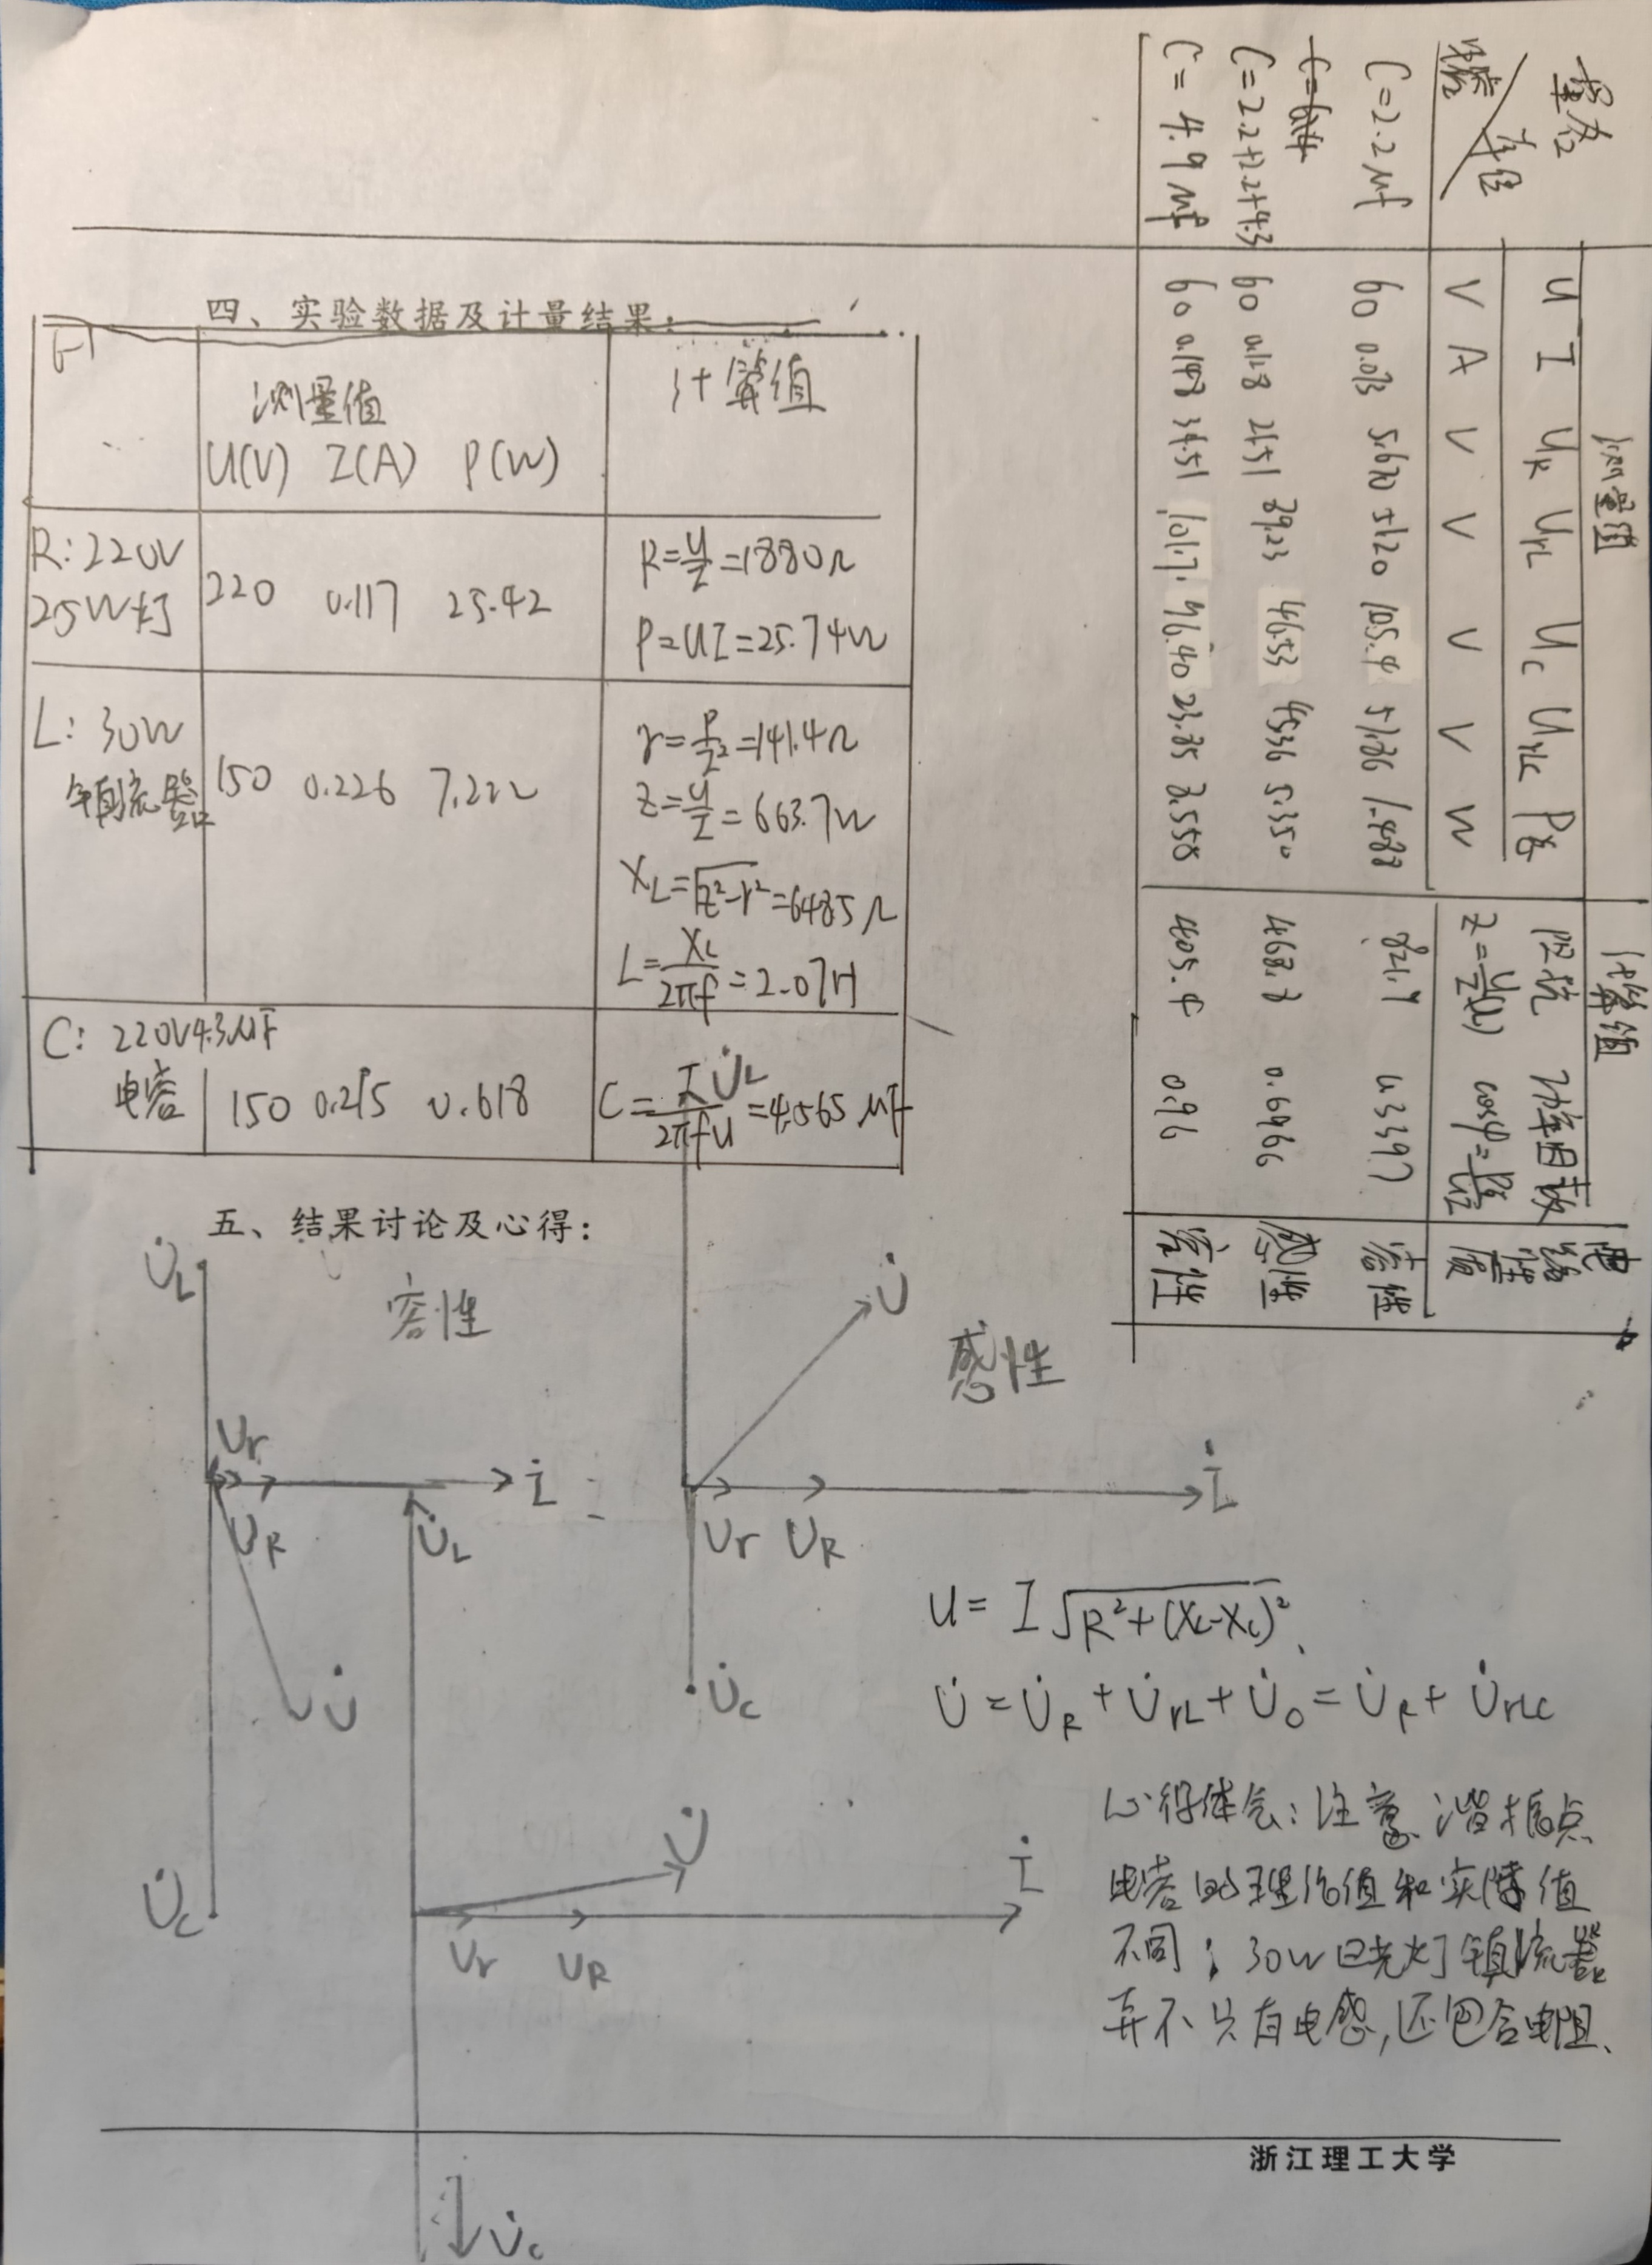 四、实验数据及计量结果：
6-1
测量值
计算值
U(V) I(A) P(W)
R:220V
25W灯
220 0.117 25.42
R=U/I=1880Ω
P=UI=25.74W
L: 30W
镇流器
150 0.226 7.222
r=P/I²=141.4Ω
Z=U/I=663.7W
XL=√Z²-r²=648.5Ω
L=XL/2πf=2.07H
C: 220V4.3μF
电容
150 0.215 0.618
C=I/2πfU=4.565μF
测量值
计算值
电路性质
U I UR UrL UC UrLC P总
V A V V V V W
阻抗 Z=U/I(Ω)
功率因数 cosφ=P/UI
C=2.2μf
60 0.073 51.20 105.4 51.86 1.488
821.9 0.3397 容性
C=2.2+2.2+4.3
60 0.128 46.53 45.36 5.350
468.8 0.6966 感性
C=4.9μf
60 0.148 34.51 101.7 96.40 23.85 8.558
405.4 0.96 容性
五、结果讨论及心得：
U̇L
容性
Ur
UR
İ
U̇
U̇C
U̇L
感性
U̇
Ur UR
İ
U̇C
U̇L
U̇
Ur UR
İ
U̇C
U= I√R²+(XL-XC)²
U̇=U̇R+U̇rL+U̇C=U̇R+U̇rLC
心得体会：注意谐振点
电容的理论值和实际值
不同；30W日光灯镇流器
并不只有电感,还包含电阻、
浙江理工大学